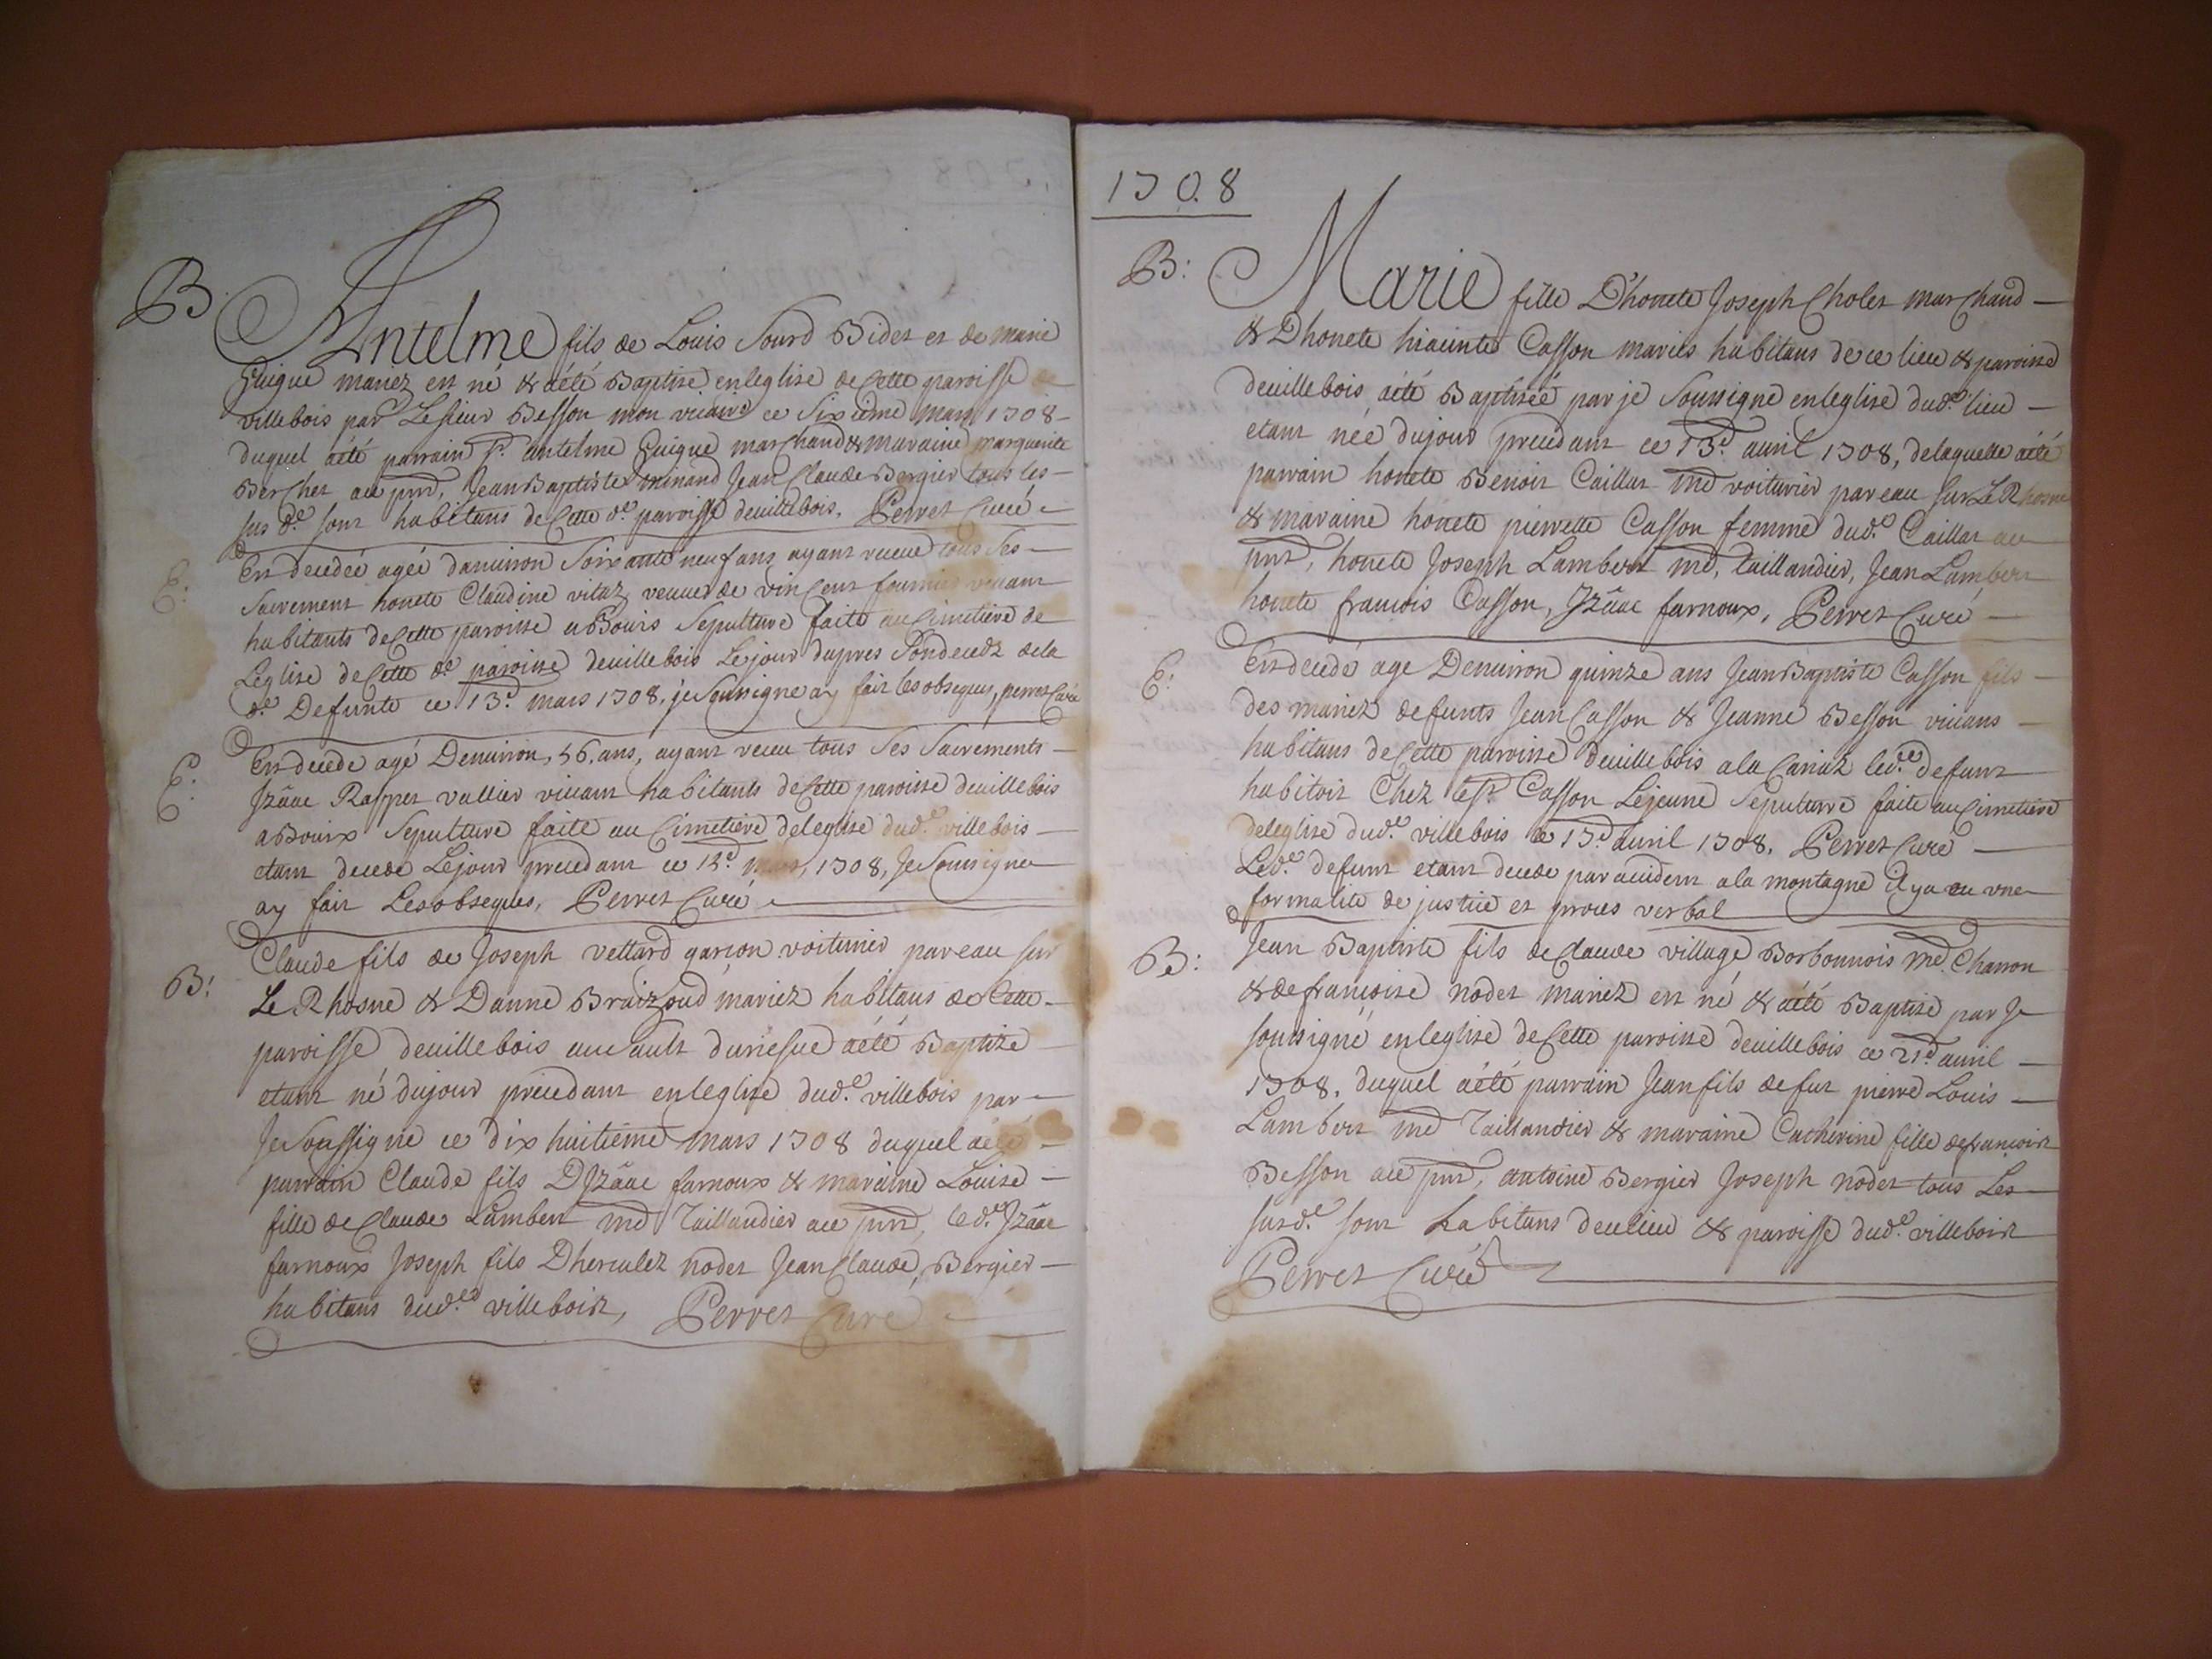 B.
Antelme fils de Louis Sourd Bidet et de marie
Guigue mariez est né & aété Baptisé enleglise de Cette paroisse de
villebois par Lesieur Besson mon vicaire ce Sixieme mars 1708
duquel aété parrain Sr. antelme Guigue marchand & maraine marguerite
Berchet au pnt, Jean Baptiste minand Jean Claude Bergier tous les
sus de. sont habitans de Cette de. paroisse devillebois. Perret Curé
E:
Est decedée agée danuiron Soixante neuf ans ayant receue tous ses
Sacrement honete Claudine vitaz veuue de vincent fournier viuant
habitants deCette paroisse aBouis Sepulture faite au Cimetiere de
Leglise deCette de. paroisse deuillebois Lejour dapres Sondecedz dela
de. Defunte ce 13e. mars 1708. je Soussigne ay fait les obseques, perret Curé
E:
Est decede agé Denuiron, 56. ans, ayant receu tous ses Sacrements
Izâac Rappet vallier viuant habitants deCette paroisse deuillebois
aBouix Sepulture faite au Cimetiere deleglise dude. villebois
etant decede Lejour precedant ce mars, 1708, Je Soussigne
ay fait Lesobseques, Perret Curé
B:
Claude fils de Joseph vettard garçon voiturier pareau sur
Le Rhosne & Danne Braizoud mariez habitans de Cette
paroisse deuillebois aété Baptize
etant né dujour precedant enleglise dude. villebois par
Je Soussigne ce dix huitieme mars 1708 duquel aété
parrain Claude fils DIzâac farnoux & maraine Louise
fille deClaude Lambert md Taillandier au pnt, led.e Izâac
farnoux Joseph fils Dherculez nodet Jean Claude, Bergier
habitans dud.es villebois, Perret Curé
1708
B:
Marie fille D'honete Joseph Cholet marchand
& Dhonete hiacinte Casson mariés habitans de ce lieu & paroisse
deuillebois aété Baptiséé par je Soussigne enleglise dude. lieu
etant néé dujour precedant ce 13e. auril 1708, delaquelle aété
parrain honete Benoit Caillat md voiturier pareau sur Le Rhosne
& maraine honete pierrette Casson femme dude. Caillat au
pnt, honete Joseph Lambert md, taillandier, Jean Lambert
honete francois Casson, Izâac farnoux, Perret Curé
E:
Est decedé age Denuiron quinze ans Jean Baptiste Casson fils
des mariez defunts Jean Casson & Jeanne Besson viuans
habitans deCette paroisse deuillebois ala led.e defunt
habitoit Chez leSr. Casson Lejeune Sepulture faite au Cimetiere
deleglise dude. villebois le auril 1708. Perret Curé
Lede. defunt etant decede par accident ala montagne il ya eu vne
formalite de justice et proces verbal
B:
Jean Baptiste fils deClaude village Borbonnois md. Charron
& defrancoise nodet mariez est né & aété Baptisé par Je
soussigné enleglise deCette paroisse deuillebois ce 21e auril
1708. duquel aété parrain Jean fils defut pierre Louis
Lambert md Taillandier & maraine Catherine fille defrancois
Besson au pnt, antoine Bergier Joseph nodet tous Les
susde. sont habitans deulieu & paroisse dude. villebois
Perret Curé